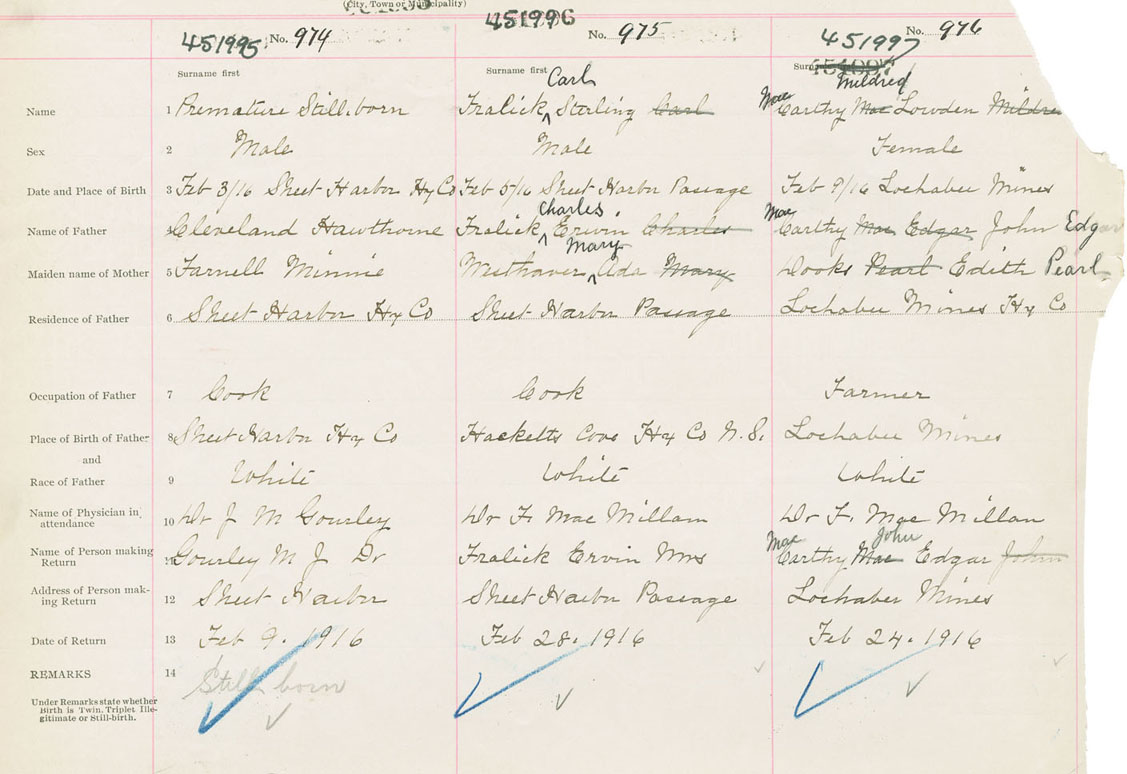 (City, Town or Municipality)
451995 No. 974
451996 No. 975
451997 No. 976
Surname first Surname first Carl Mildred
Name 1 Premature Stillborn Fralick Sterling Carl Mac Carthy Mac Lowden Mildred
Sex 2 Male Male Female
Date and Place of Birth 3 Feb 3/16 Sheet Harbor Hx Co Feb 5/16 Sheet Harbor Passage Feb 9/16 Lochaber Mines
Charles Mac
Name of Father Cleveland Hawthorne Fralick Ervin Charles Carthy Mac Edgar John Edgar
Mary
Maiden name of Mother 5 Farnell Minnie Westhaver Ada Mary Pearl Edith Pearl
Residence of Father 6 Sheet Harbor Hx Co Sheet Harbor Passage Lochaber Mines Hx Co
Occupation of Father 7 Cook Cook Farmer
Place of Birth of Father 8 Sheet Harbor Hx Co Hacketts Cove Hx Co N.S. Lochaber Mines
and
Race of Father 9 White White White
Name of Physician in attendance 10 Dr J M Gourley Dr F. Mac Millan Dr F. Mac Millan
Mac John
Name of Person making Return Gourley M J Dr Fralick Ervin Mrs Carthy Mac Edgar John
Address of Person making Return 12 Sheet Harbor Sheet Harbor Passage Lochaber Mines
Date of Return 13 Feb 9. 1916 Feb 28. 1916 Feb 24. 1916
REMARKS 14 Still born
Under Remarks state whether
Birth is Twin. Triplet Ille-
gitimate or Still-birth.